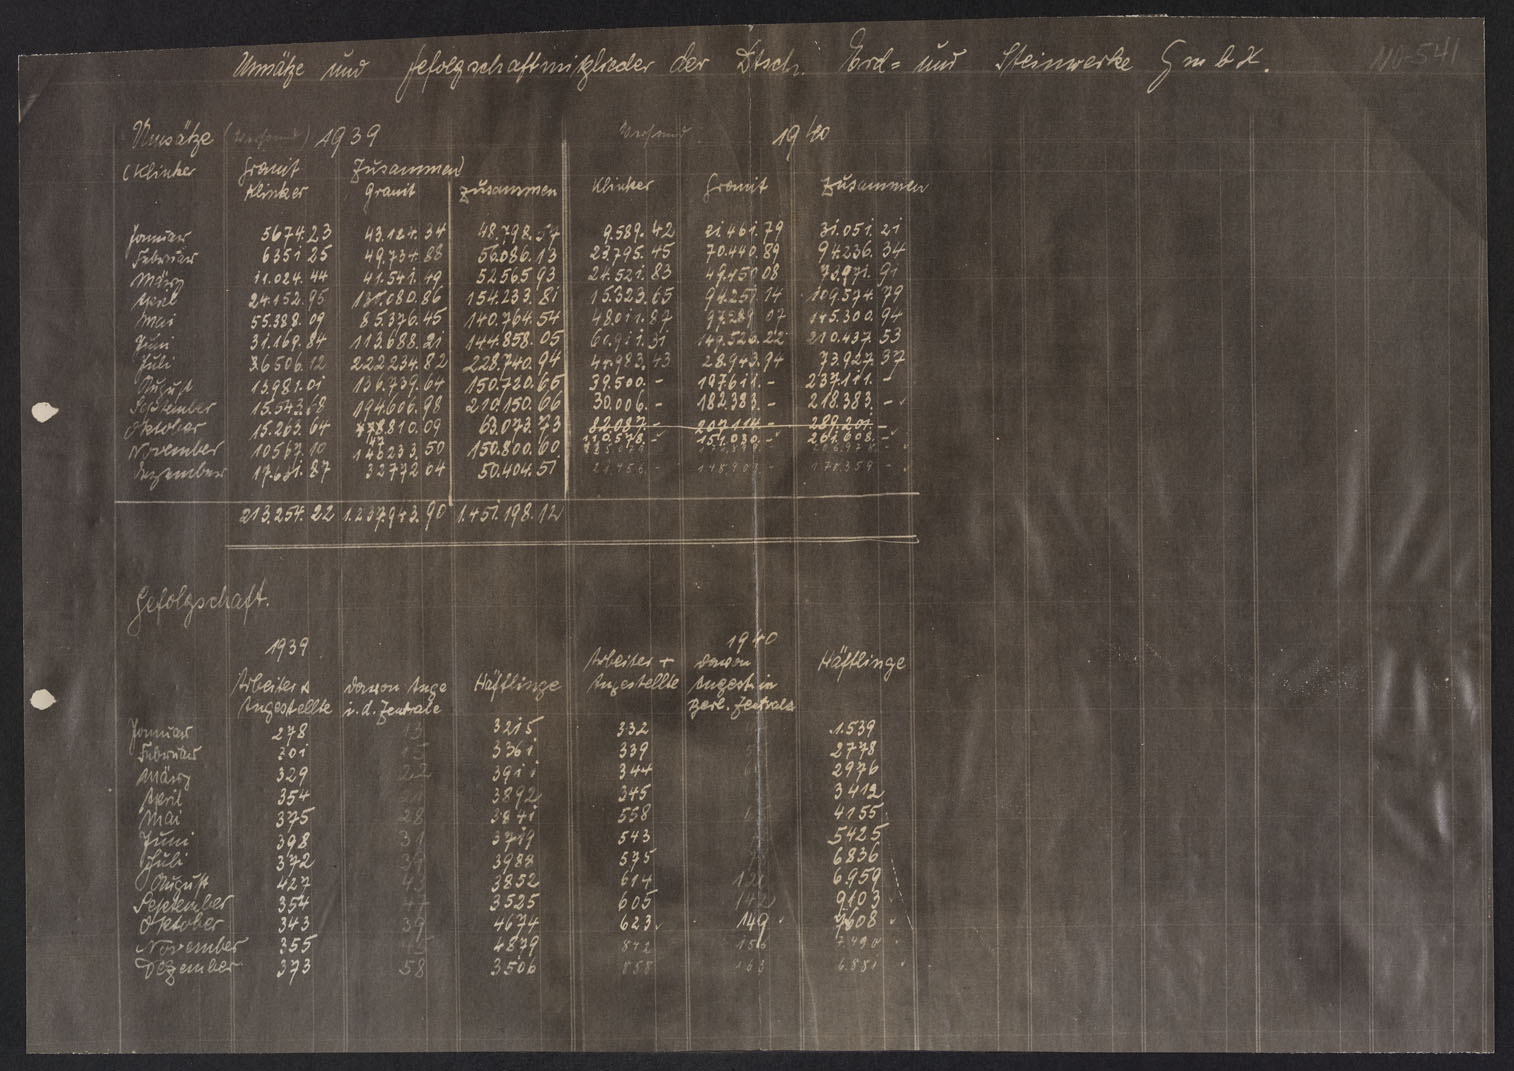 Umsätze und Gefolgschaftmitglieder der Dtsch. Erd= und Steinwerke G m b H.
NO-541
Umsätze (Versand) 1939 Versand 1940
(Klinker Granit Zusammen)
Klinker Granit Zusammen Klinker Granit Zusammen
Januar 5674.23 43.124.34 48.798.57 9.589.42 21461.79 31.051.21
Februar 6351 25 49.734.88 56.086.13 23.795.45 70.440.89 94.236.34
März 11.024.44 41.541.49 52565.93 24.521.83 49.450 08
April 24.152.95 154.233.81 15.323.65 94.251.14 109.574.79
Mai 55.388.09 85.376.45 140.764.54 48.011.87 97.289 07 145.300.94
Juni 31.169.84 113688.21 144.858.05 60.911.31 149.526.22 210.437.53
Juli 6506.12 222234.82 228.740.94 44.983.43 28.943.94 73.927 37
August 13981.01 136.739.64 150.720.65 39.500.- 197611.- 237.111.-
September 15.543.68 194606.98 210.150.66 30.006.- 182.383.- 218.383.-
Oktober 15.263.64 810.09 63.073.73 32.087.- 207.114.- 289.201.-
47 110.578.- 151.030.- 261.608.-
November 10567.10 140233.50 150.800.60
Dezember 17.631.87 32772 64 50.404.51 178.359 -
213.254.22 1.237.943.90 1.451.198.12
Gefolgschaft.
1939 1940
Arbeiter + Angestellte davon Ange i.d. Zentrale Häftlinge Arbeiter + Angestellte davon Angest. in Zentrale Häftlinge
Januar 278 13 3215 332 1539
Februar 301 15 3361 339 2778
März 329 22 3911 344 2976
April 354 3892 345 3412
Mai 375 28 3841 558 4155
Juni 398 31 3719 543 5425
Juli 372 39 3988 575 6836
August 427 3852 614 6959
September 354 47 3525 605 142 9103
Oktober 343 39 4674 623 149 7608
November 355 4879 842 156 7.490
Dezember 373 58 3506 858 163 6.851